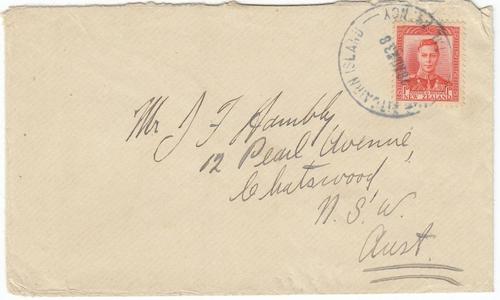 PITCAIRN ISLAND
NEW ZEALAND
Mr J F Hambly
12 Pearl Avenue,
Chatswood
N.S.W.
Aust.